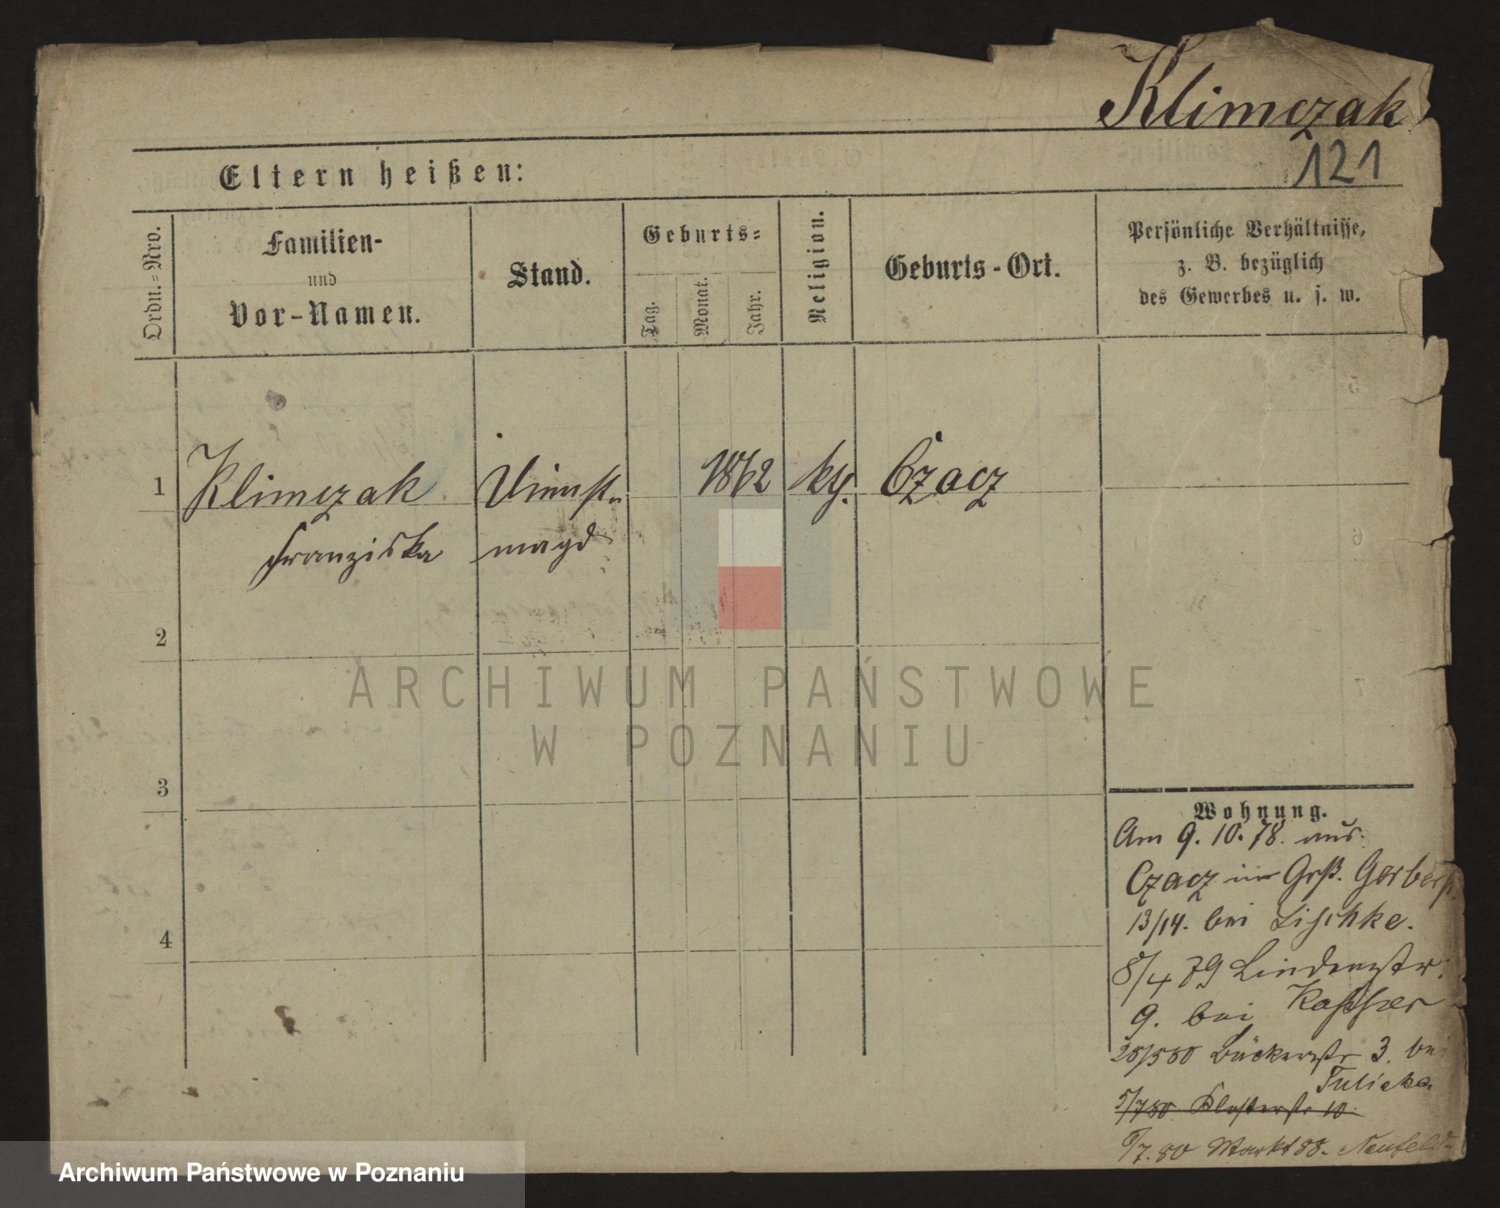 Klimczak
121
Eltern heißen:
Ordn.=Nro.
Familien-
und
Vor-Namen.
Stand.
Geburts=
Tag.
Monat.
Jahr.
Religion.
Geburts-Ort.
Persönliche Verhältnisse,
z. B. bezüglich
des Gewerbes u. s. w.
1
Klimczak
Dienst-
1862
kth.
Czacz
Franziska
magd
2
3
4
ARCHIWUM PAŃSTWOWE
W POZNANIU
Wohnung.
Am 9. 10. 78. aus
Czacz in Grß. Gerberst.
13/14. bei Lischke.
8/4 79 Lindenstr.
9. bei
3. bei
5/7 80 Klosterstr 10.
/7.80 Markt 88. Neufeld
Archiwum Państwowe w Poznaniu